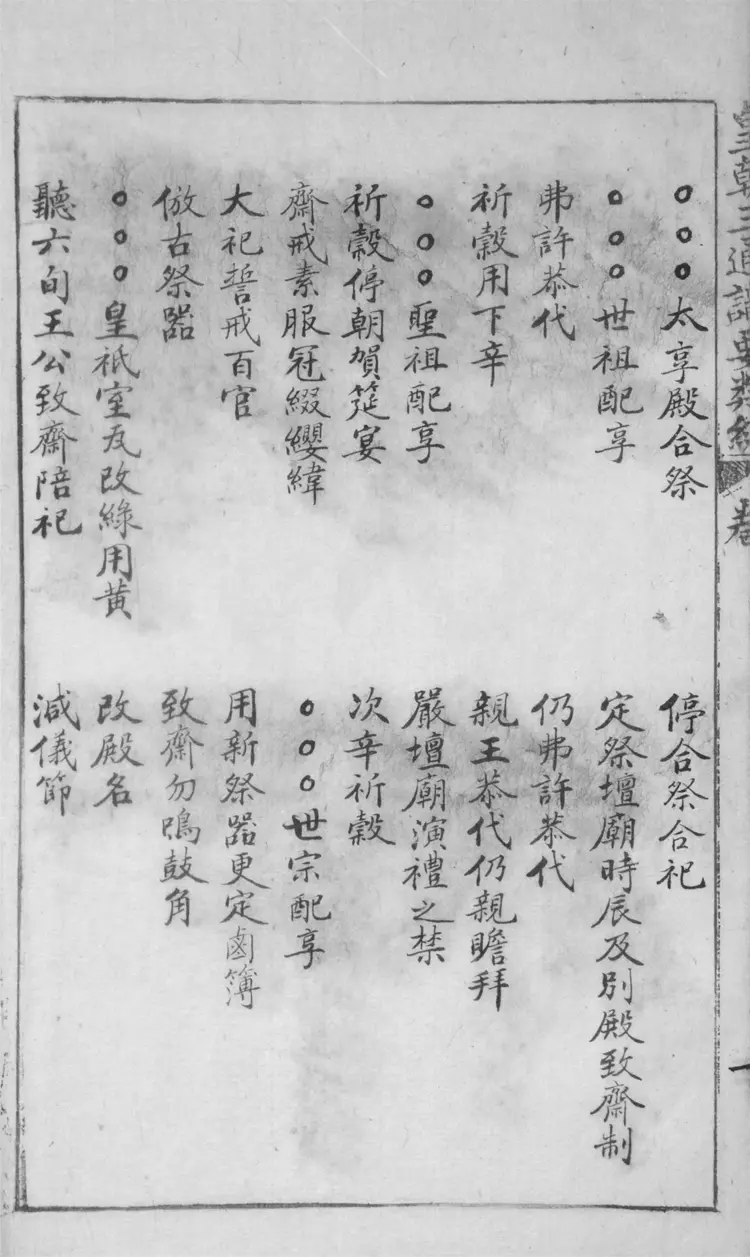 ○○○太享殿合祭 停合祭合祀
○○○世祖配享 定祭壇廟時辰及別殿致齋制
弗許恭代 仍弗許恭代
祈穀用下辛 親王恭代仍親瞻拜
○○○聖祖配享 嚴壇廟演禮之禁
祈穀停朝賀筵宴 次辛祈穀
齋戒素服冠綴纓緯 ○○○世宗配享
大祀誓戒百官 用新祭器更定鹵簿
倣古祭器 致齋勿鳴鼓角
○○○皇祇室瓦改綠用黃 改殿名
聽六旬王公致齋陪祀 減儀節